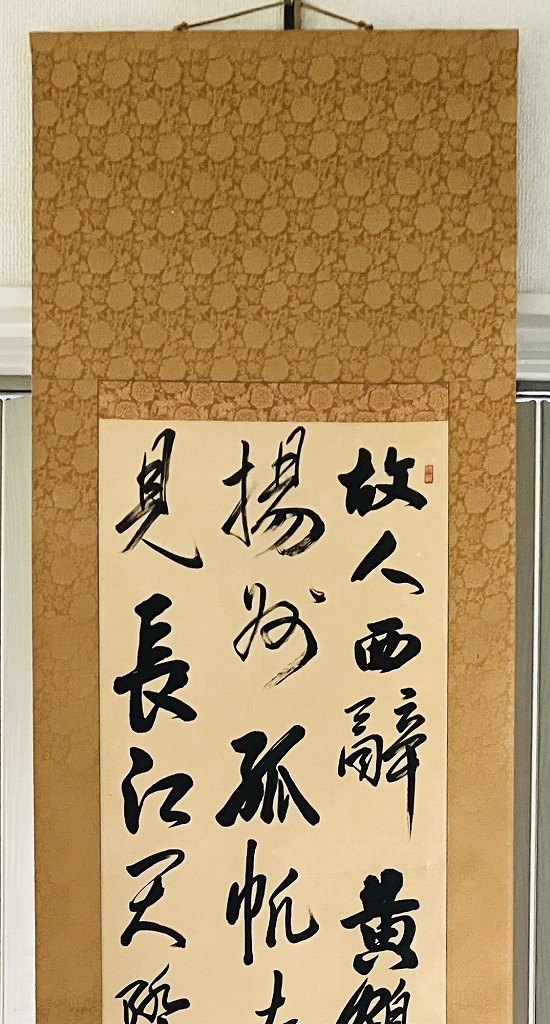 故人西辭黄鶴
揚州孤帆
見長江天際